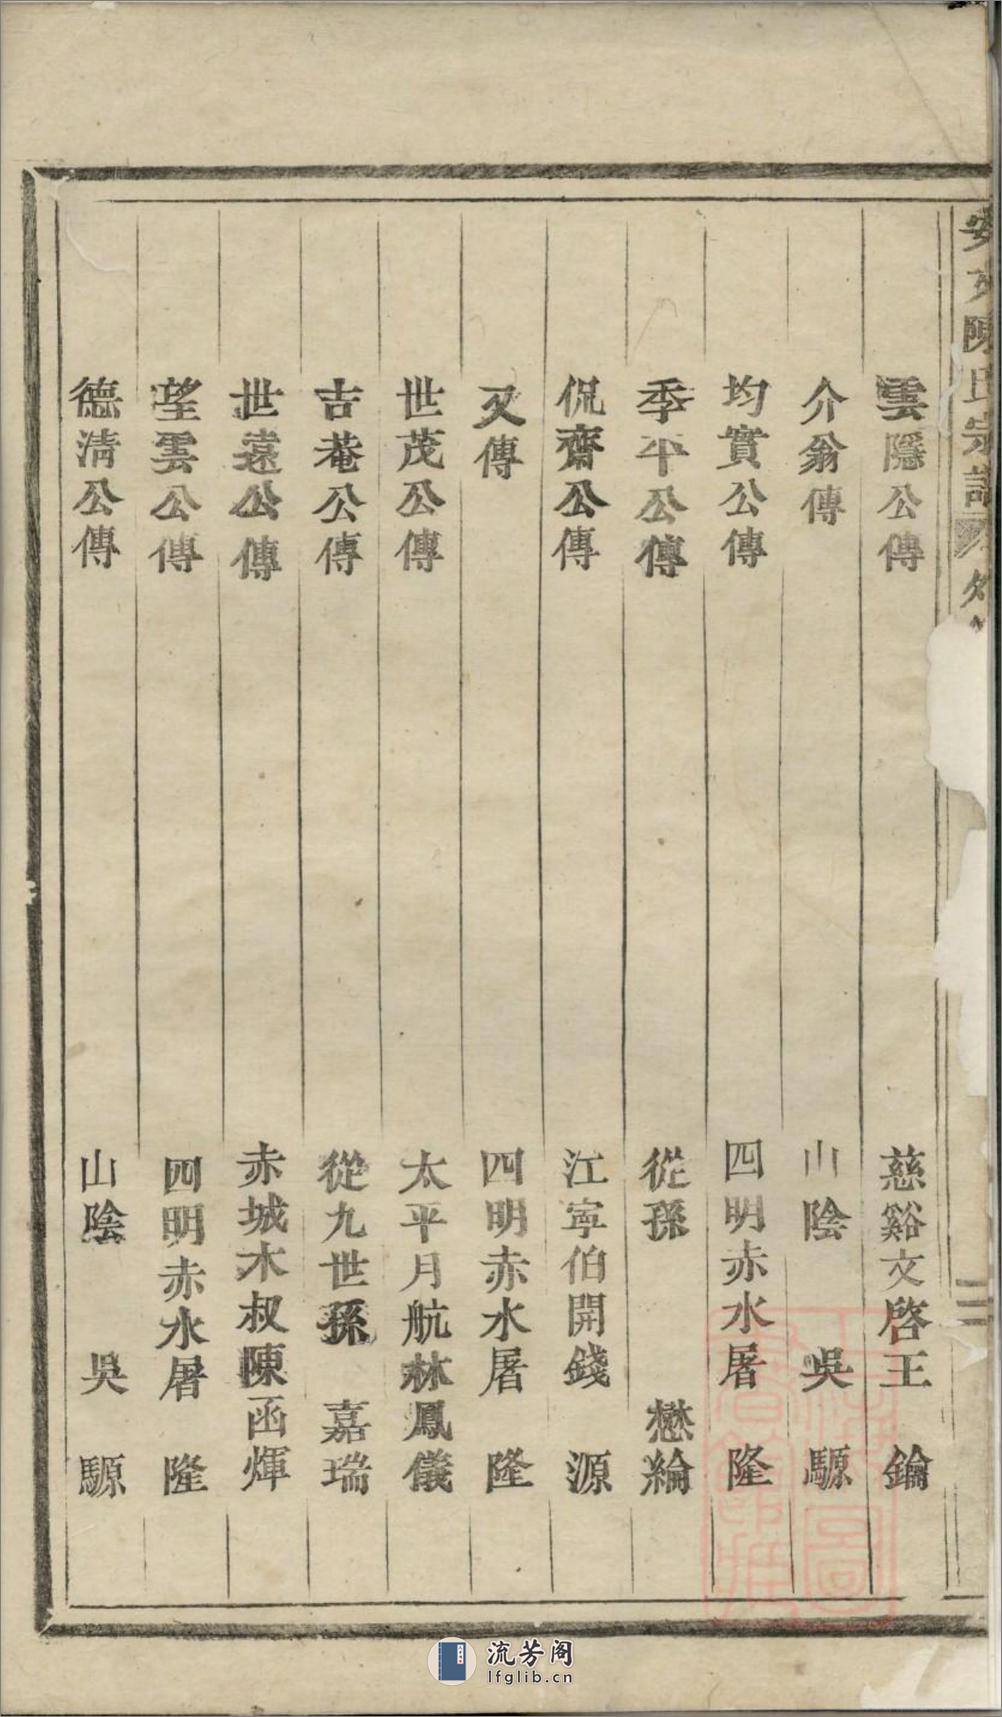 陳氏宗譜
雲隱公傳 慈谿文啓王 鑰
介翁傳 山陰 吳 騵
均實公傳 四明赤水屠 隆
季平公傳 從孫 懋綸
侃齋公傳 江寧伯開錢 源
又傳 四明赤水屠 隆
世茂公傳 太平月航林鳳儀
吉菴公傳 從九世孫 嘉瑞
世遠公傳 赤城木叔陳函煇
望雲公傳 四明赤水屠 隆
德清公傳 山陰 吳 騵
流芳阁
lfglib.cn